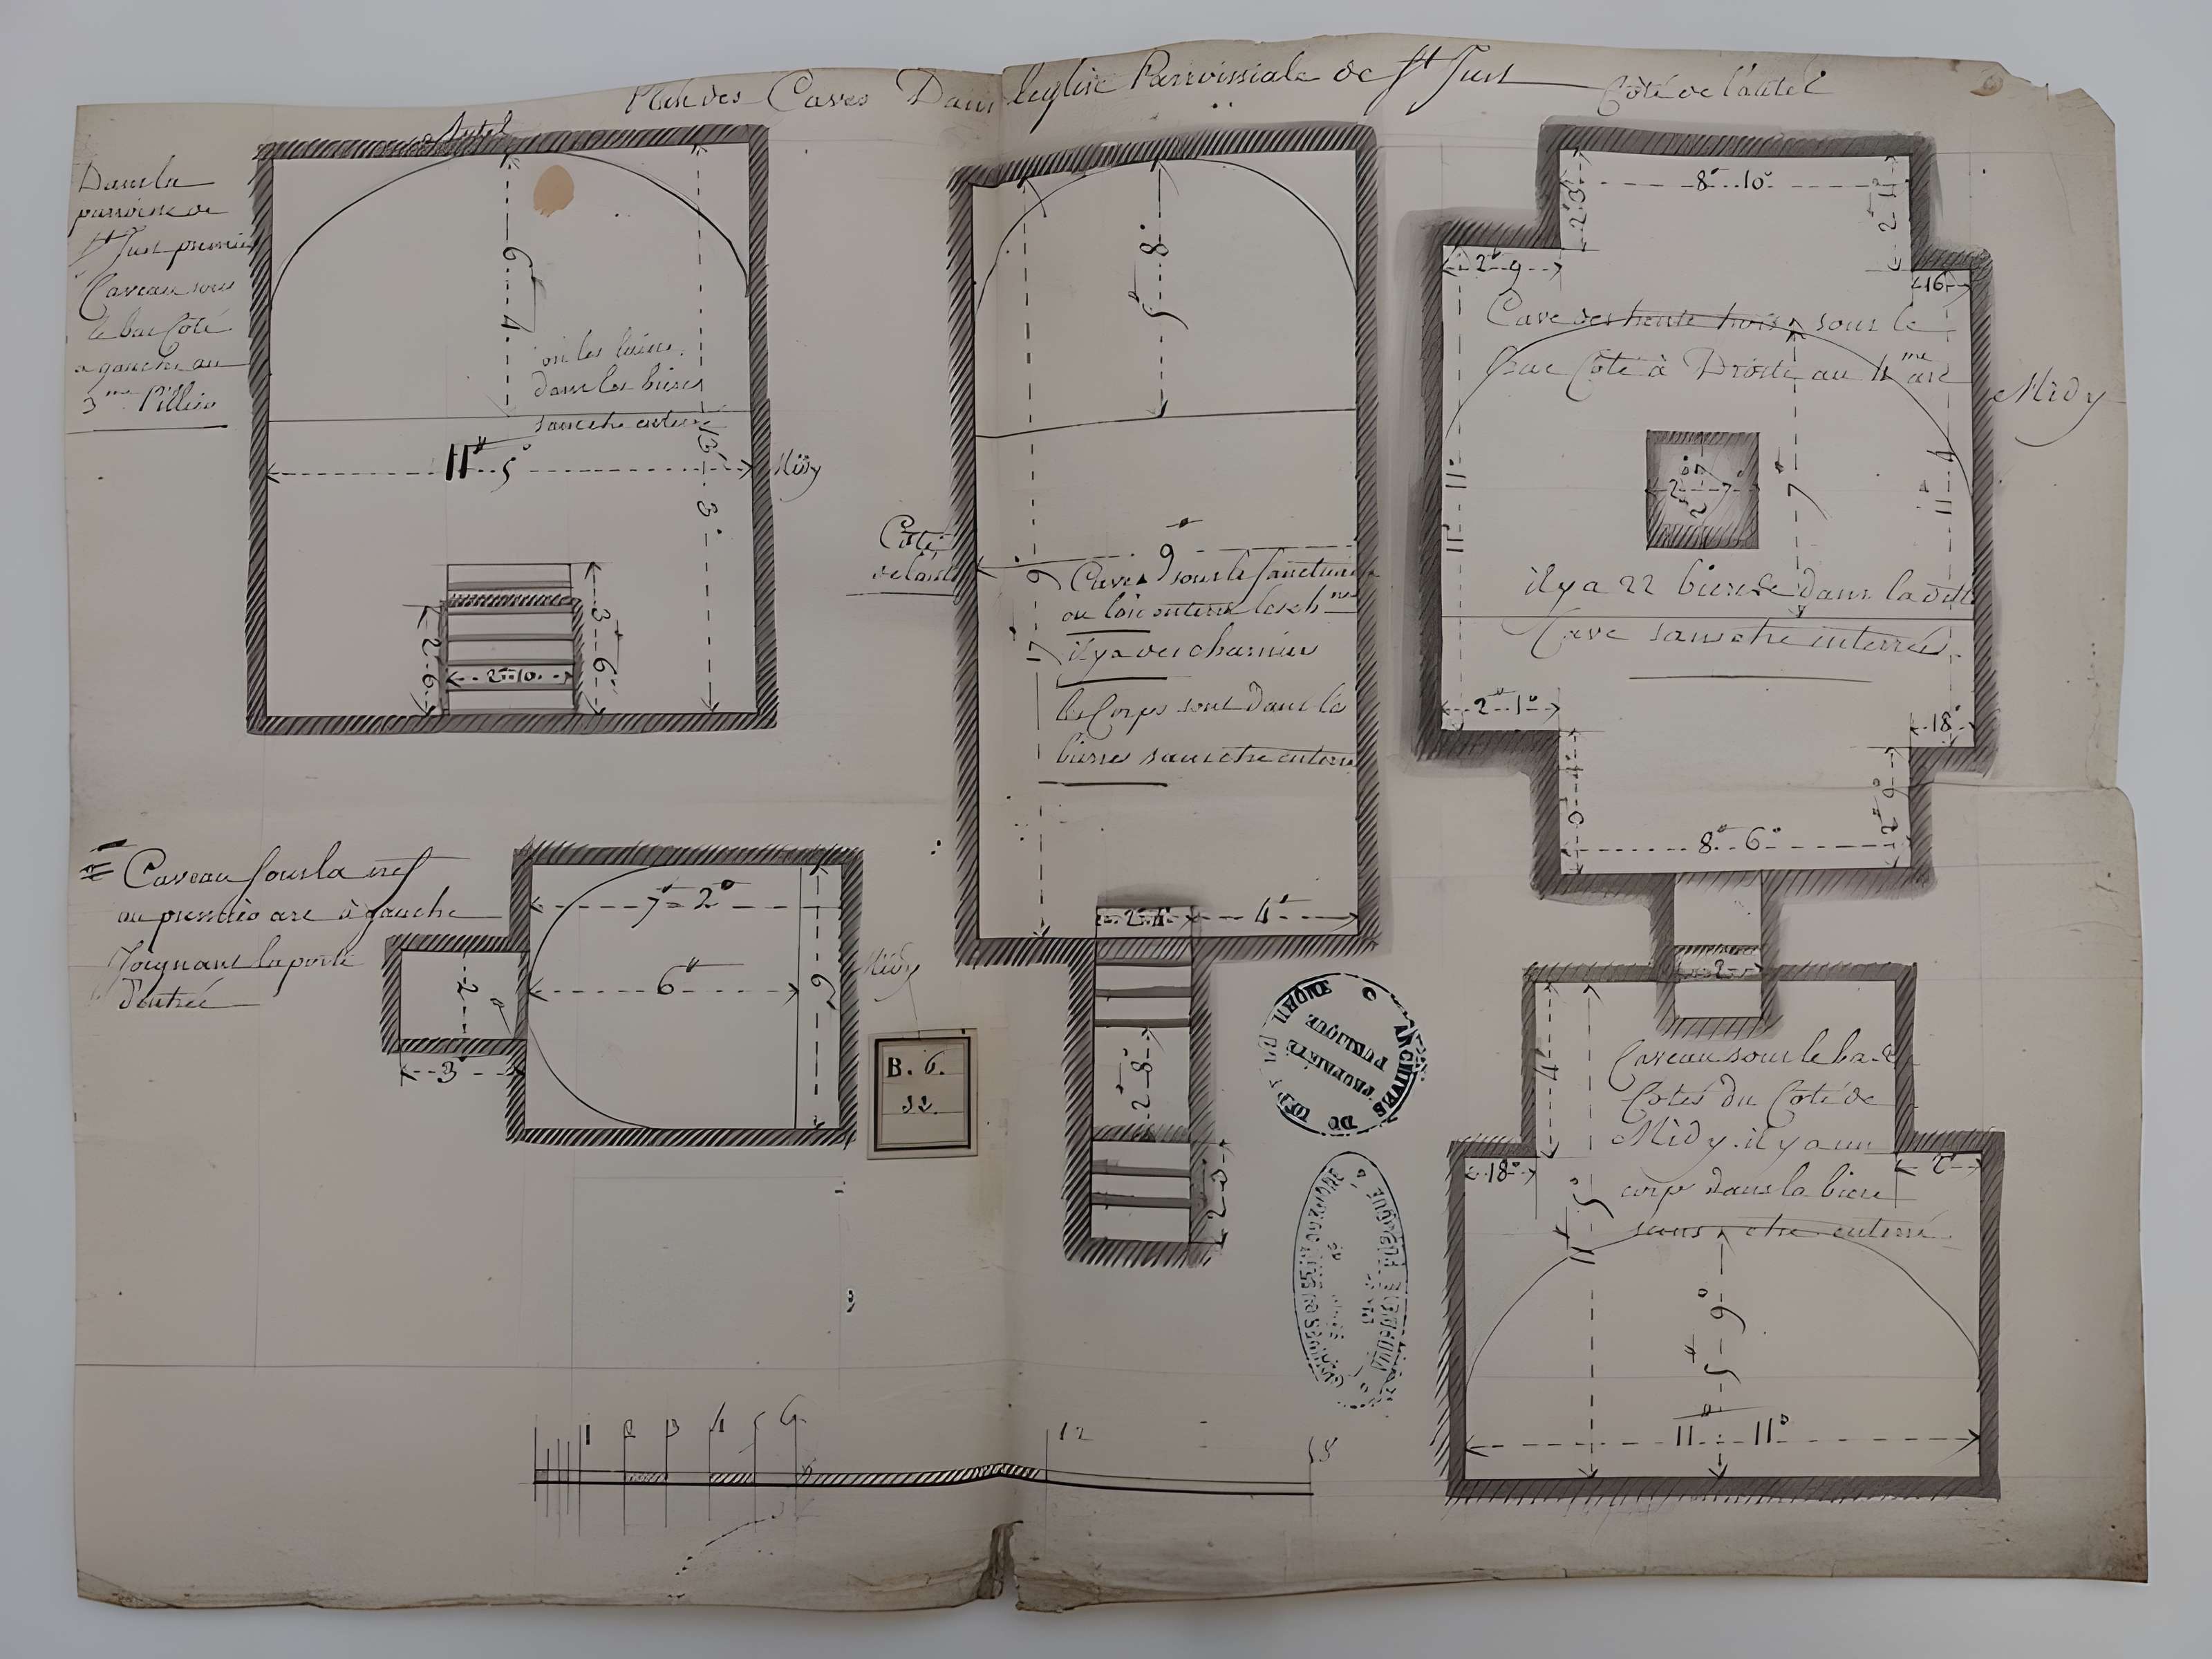 Plan des Caves Dans leglise Parroissiale de St Just
Coté de l'autel
Autel
Dans la
parroisse de
St Just premier
Caveau sous
le bas Coté
a gauche au
3me Pillier
6 4
on les laisse
dans les bieres
sans etre enterré
11 5°
13 3°
Midy
2 6
2 10
3 6
5 8°
Coté
de l'autel
9
17 9
Cave sous le Sanctuaire
ou l'on enterre les
il y a des charniers
les Corps sont Dans les
bieres sans etre enterré
4
2 8°
8 10°
2 3°
2 9
16
Cave des trente trois sous le
bas Coté à Droite au 4me arc
Midy
11 11
11 4
7
2 7°
il y a 22 bieres Dans la ditte
Cave sans etre enterrés
2 1°
18°
2 9°
8 6°
2
Caveau sous la nef
au premier arc à gauche
Joignant la porte
d'entrée
7 2°
6
9
2
3
Midy
B. 6.
32.
ARCHIVES DU DÉPT DU RHÔNE
PROPRIÉTÉ
PUBLIQUE
4
18°
2
Caveau sous le bas
Cotés du Coté de
Midy. il y a un
corps dans la biere
sans etre enterré
11 5°
5 9°
11 11°
1 2 3 4 5 6 12 18